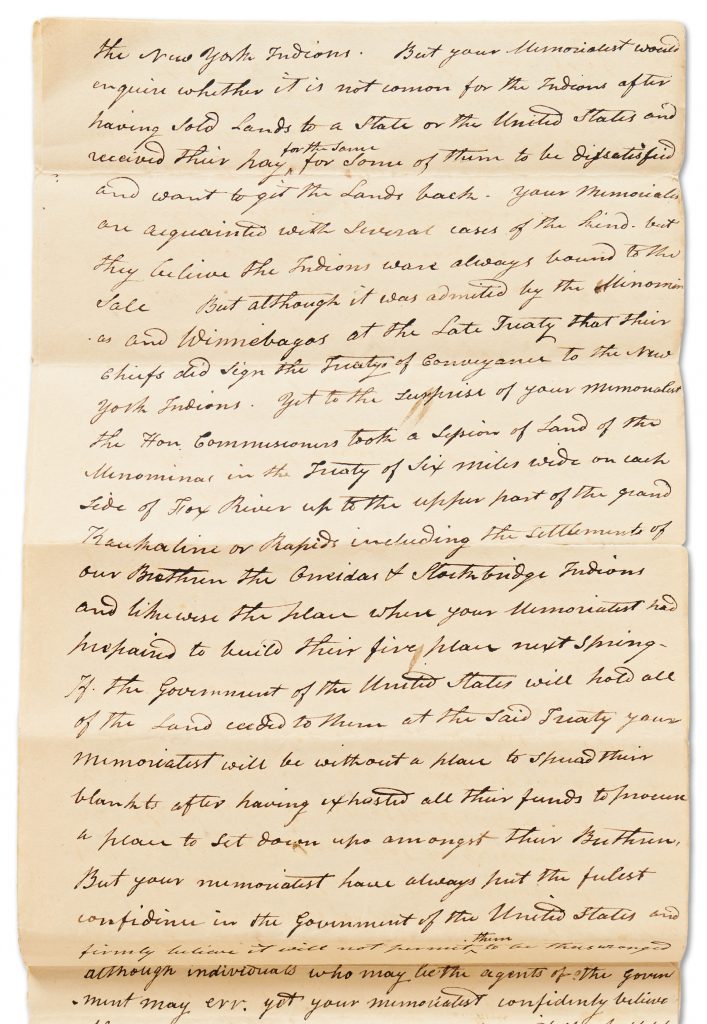 the New York Indions. But your Memorialest would
enquire whether it is not comon for the Indions after
having Sold Lands to a State or the United States and
received their pay for the Same for Some of them to be dissatisfied
and want to git the Lands back. your Memorialest
are acquainted with Several cases of the kind. but
they believe the Indions ware always bound to the
Sale But although it was admited by the Minomin
as and Winnebagos at the Late Treaty that their
Chiefs did Sign the Treatys of Conveyance to the New
York Indions. Yet to the Surprise of your Memorialest
the Hon. Commisioners took a Session of Land of the
Menominas in the Treaty of Six miles wide on each
Side of Fox River up to the upper part of the grand
Kaukaline or Rapids including the Settlements of
our Brethren the Oneidas & Stockbridge Indions
and likewise the place where your Memorialest had
prepaired to build their five place next Spring-
If the Government of the United States will hold all
of the Land ceeded to them at the Said Treaty your
Memorialest will be without a place to Spread their
blankts after having exhosted all their funds to procure
a place to Set down upo amongst their Brethren,
But your memorialest have always put the fulest
confidince in the Government of the United States and
firmly believe it will not permit them to be thus wronged
although individuals who may be the agents of the Govern
-ment may err. yet your memorialest confidenly believe